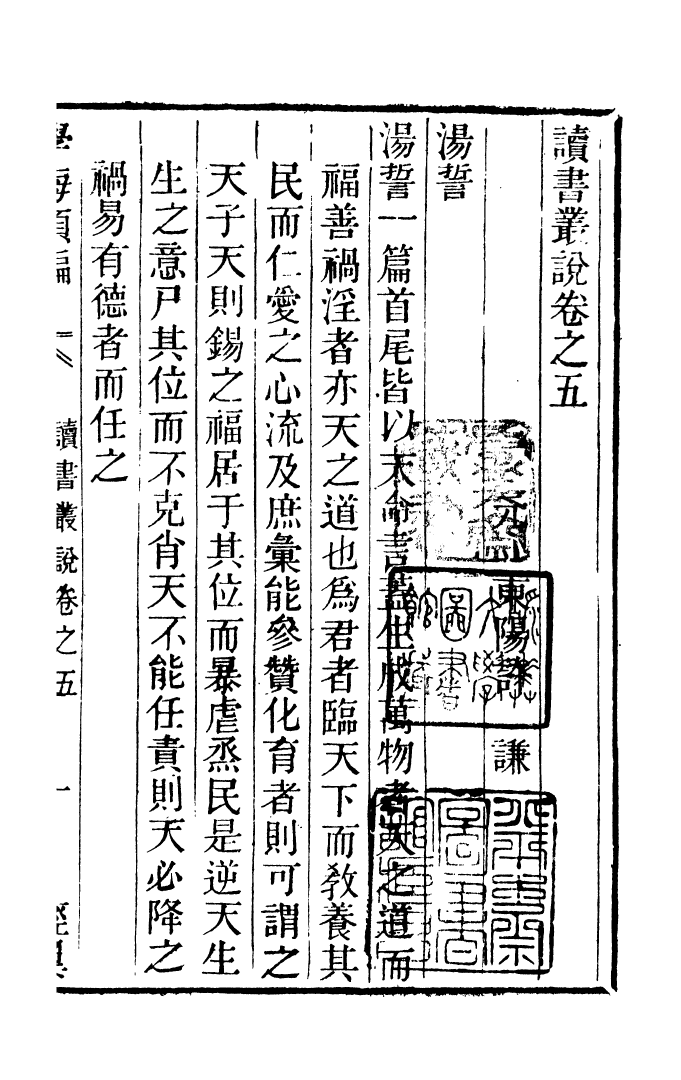 讀書叢說卷之五
東陽許　謙
湯誓
湯誓一篇首尾皆以天命言蓋生成萬物者天之道而
福善禍淫者亦天之道也爲君者臨天下而教養其
民而仁愛之心流及庶彙能參贊化育者則可謂之
天子天則錫之福居于其位而暴虐烝民是逆天生
生之意尸其位而不克肖天不能任責則天必降之
禍易有德者而任之
學海類編　讀書叢說卷之五　一　經翼